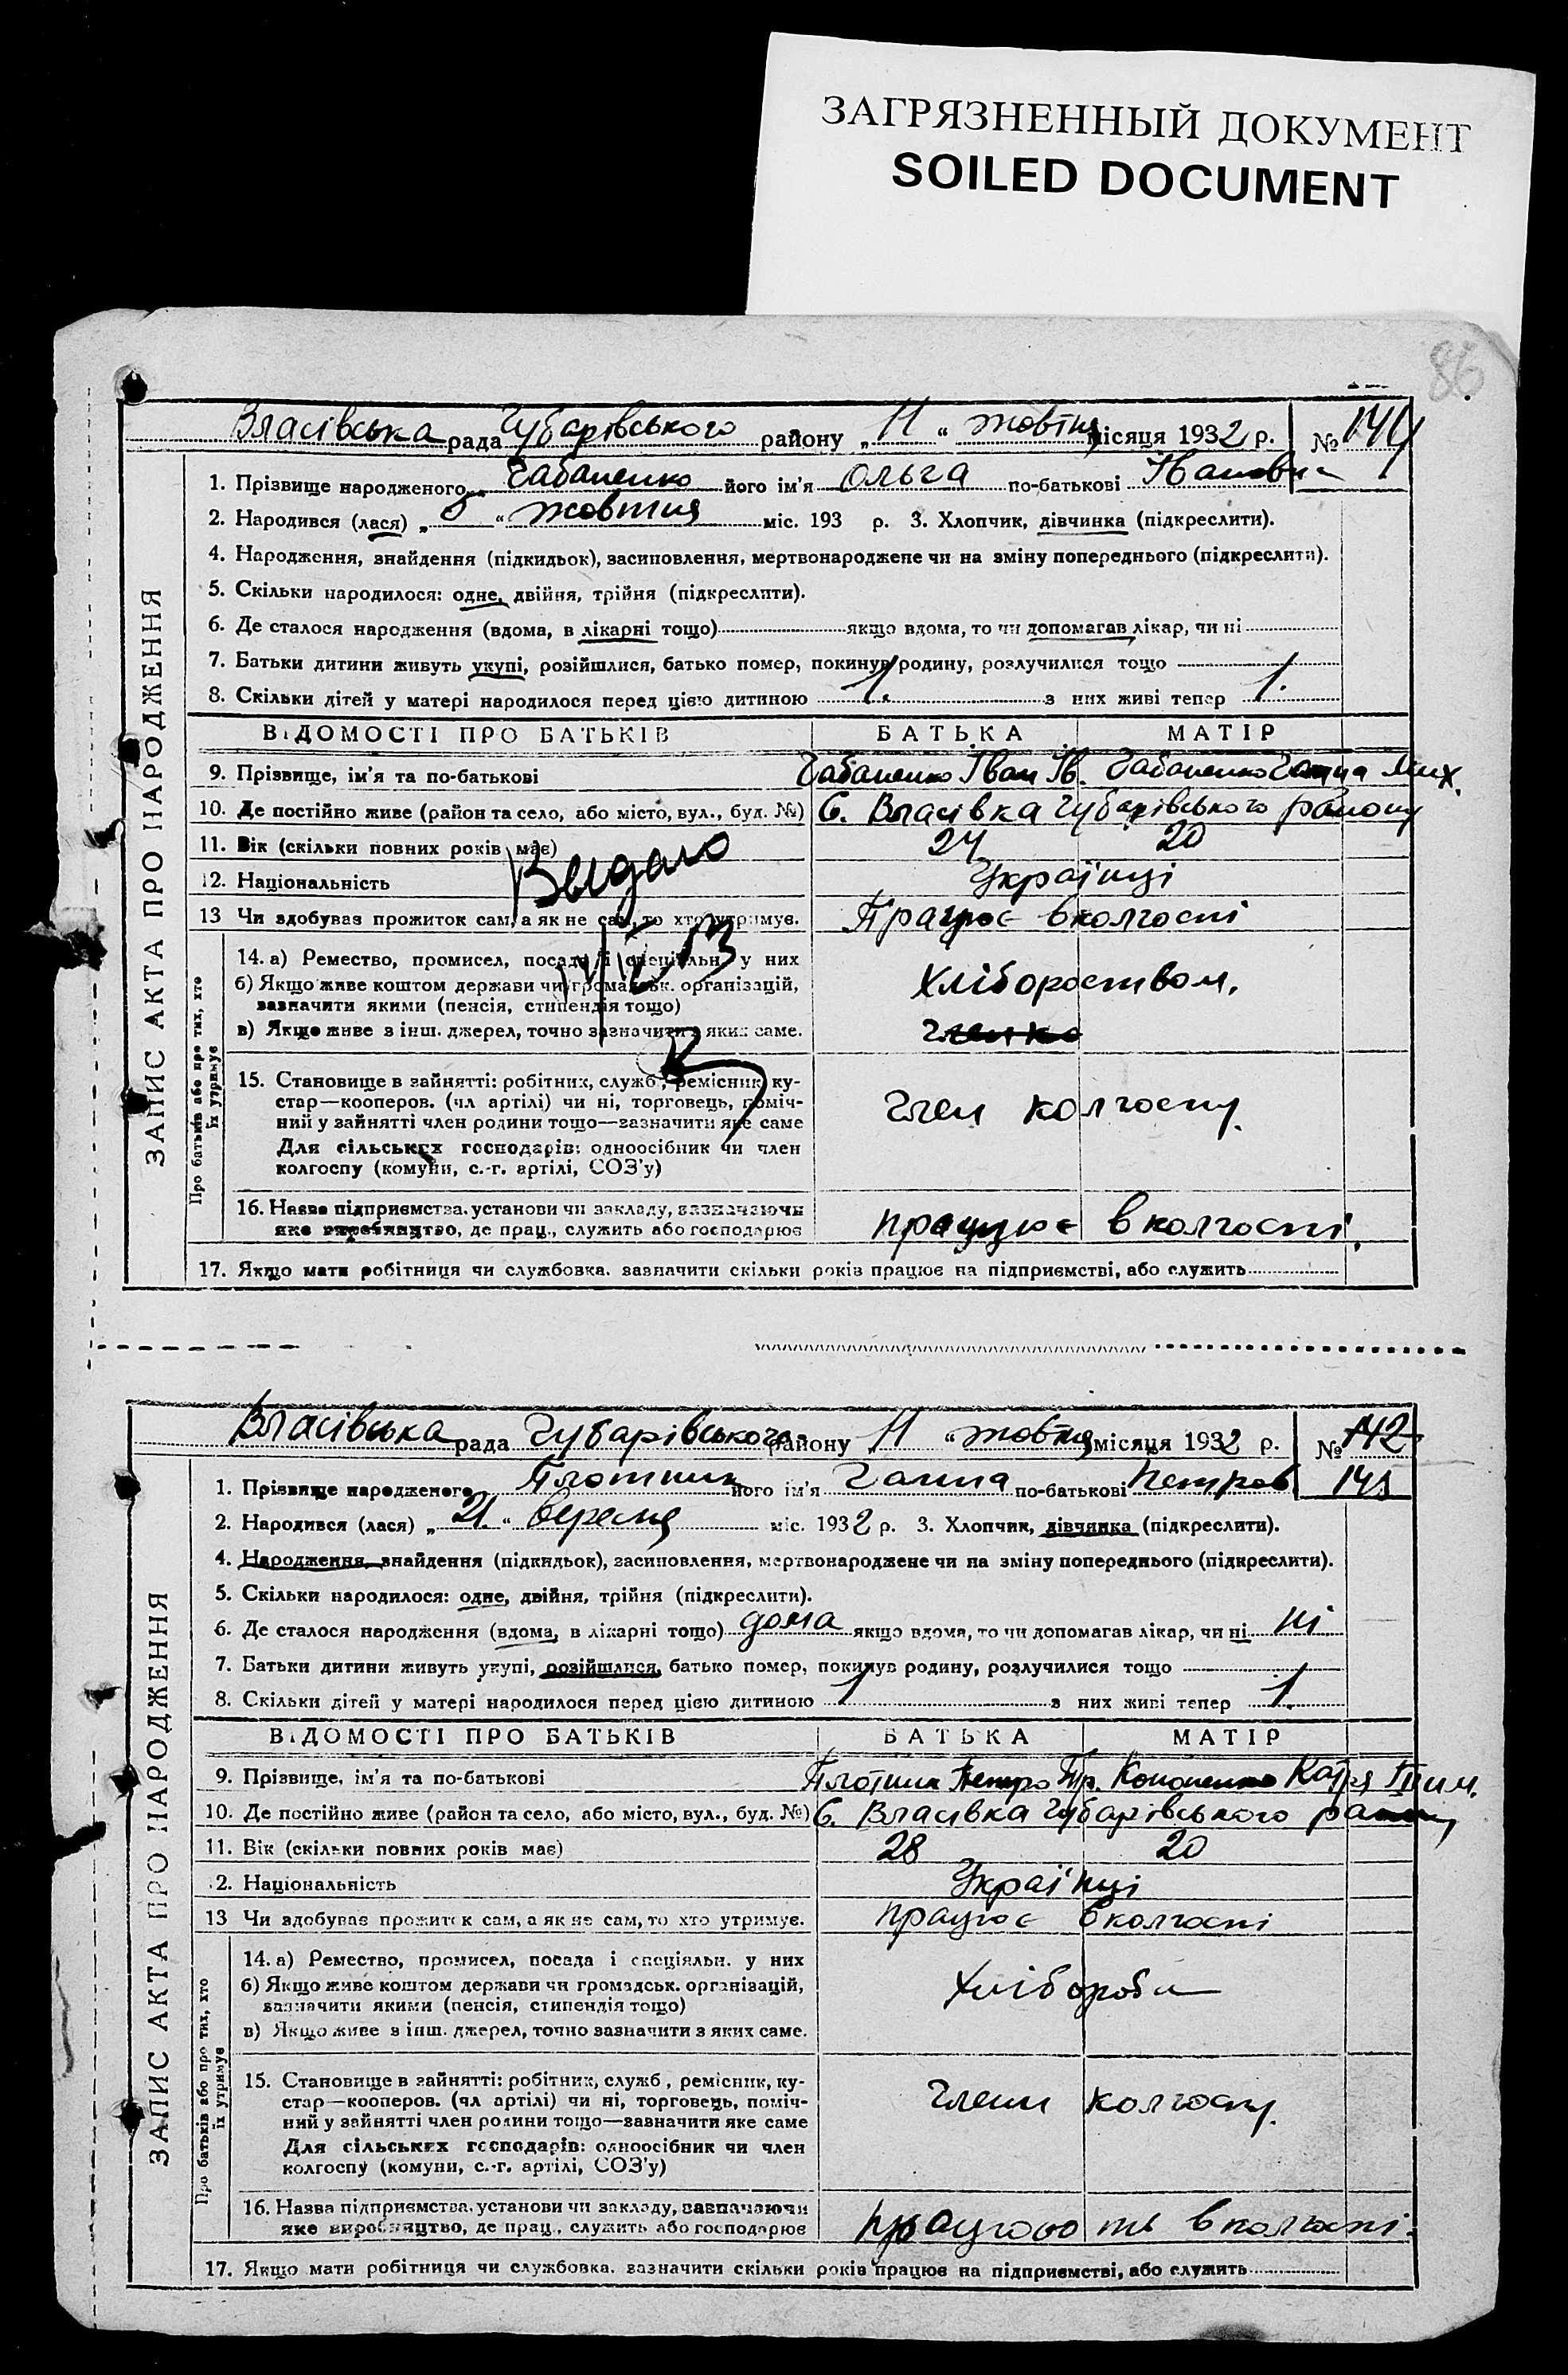 ЗАГРЯЗНЕННЫЙ ДОКУМЕНТ
SOILED DOCUMENT
86
ЗАПИС АКТА ПРО НАРОДЖЕННЯ
Власівська рада Чубарівського району „11“ жовтня місяця 1932 р. № 144
1. Прізвище народженого Чабаненко його ім'я Ольга по-батькові Івановн
2. Народився (лася) „8“ жовтня міс. 193 р. 3. Хлопчик, дівчинка (підкреслити).
4. Народження, знайдення (підкидьок), засиновлення, мертвонароджене чи на зміну попереднього (підкреслити).
5. Скільки народилося: одне, двійня, трійня (підкреслити).
6. Де сталося народження (вдома, в лікарні тощо) якщо вдома, то чи допомагав лікар, чи ні
7. Батьки дитини живуть укупі, розійшлися, батько помер, покинув родину, розлучилися тощо
8. Скільки дітей у матері народилося перед цією дитиною 1. з них живі тепер 1.
ВІДОМОСТІ ПРО БАТЬКІВ БАТЬКА МАТІР
9. Прізвище, ім'я та по-батькові Чабаненко Іван Ів. Чабаненко Ганна Мих.
10. Де постійно живе (район та село, або місто, вул., буд. №) С. Власівка Чубарівського району
11. Вік (скільки повних років має) 24 20
12. Національність Українці
13 Чи здобував прожиток сам, а як не сам, то хто утримує. Працює в колгоспі
Видано
Про батьків або про тих, хто їх утримує
14. а) Ремество, промисел, посада і спеціяльн. у них
б) Якщо живе коштом держави чи громадськ. організацій,
зазначити якими (пенсія, стипендія тощо)
Хлібороством.
в) Якщо живе з інш. джерел, точно зазначити з яких саме.
15. Становище в зайнятті: робітник, служб., ремісник, ку-
стар—кооперов. (чл артілі) чи ні, торговець, поміч-
ний у зайнятті член родини тощо—зазначити яке саме
Член колгоспу.
Для сільських господарів: одноосібник чи член
колгоспу (комуни, с.-г. артілі, СОЗ'у)
16. Назва підприємства, установи чи закладу, зазначаючи
яке виробництво, де прац., служить або господарює працює в колгоспі.
17. Якщо мати робітниця чи службовка, зазначити скільки років працює на підприємстві, або служить
ЗАПИС АКТА ПРО НАРОДЖЕННЯ
Власівська рада Чубарівського району 11 “ жовтня місяця 1932 р. № 142
145
1. Прізвище народженого Плотник його ім'я Ганна по-батькові Петров
2. Народився (лася) „21.“ вересня міс. 1932 р. 3. Хлопчик, дівчинка (підкреслити).
4. Народження, знайдення (підкидьок), засиновлення, мертвонароджене чи на зміну попереднього (підкреслити).
5. Скільки народилося: одне, двійня, трійня (підкреслити).
6. Де сталося народження (вдома, в лікарні тощо) дома якщо вдома, то чи допомагав лікар, чи ні ні
7. Батьки дитини живуть укупі, розійшлися, батько помер, покинув родину, розлучилися тощо
8. Скільки дітей у матері народилося перед цією дитиною 1 з них живі тепер 1.
ВІДОМОСТІ ПРО БАТЬКІВ БАТЬКА МАТІР
9. Прізвище, ім'я та по-батькові Плотник Петро Пр. Кононенко Катря Тим.
10. Де постійно живе (район та село, або місто, вул., буд. №) С. Власівка Чубарівського району
11. Вік (скільки повних років має) 28 20
12. Національність Українці
13 Чи здобував прожиток сам, а як не сам, то хто утримує. працює в колгоспі
Про батьків або про тих, хто їх утримує
14. а) Ремество, промисел, посада і спеціяльн. у них
б) Якщо живе коштом держави чи громадськ. організацій,
зазначити якими (пенсія, стипендія тощо)
Хлібороби
в) Якщо живе з інш. джерел, точно зазначити з яких саме.
15. Становище в зайнятті: робітник, служб., ремісник, ку-
стар—кооперов. (чл артілі) чи ні, торговець, поміч-
ний у зайнятті член родини тощо—зазначити яке саме
Члени колгоспу.
Для сільських господарів: одноосібник чи член
колгоспу (комуни, с.-г. артілі, СОЗ'у)
16. Назва підприємства, установи чи закладу, зазначаючи
яке виробництво, де прац., служить або господарює працюють в колгоспі.
17. Якщо мати робітниця чи службовка, зазначити скільки років працює на підприємстві, або служить